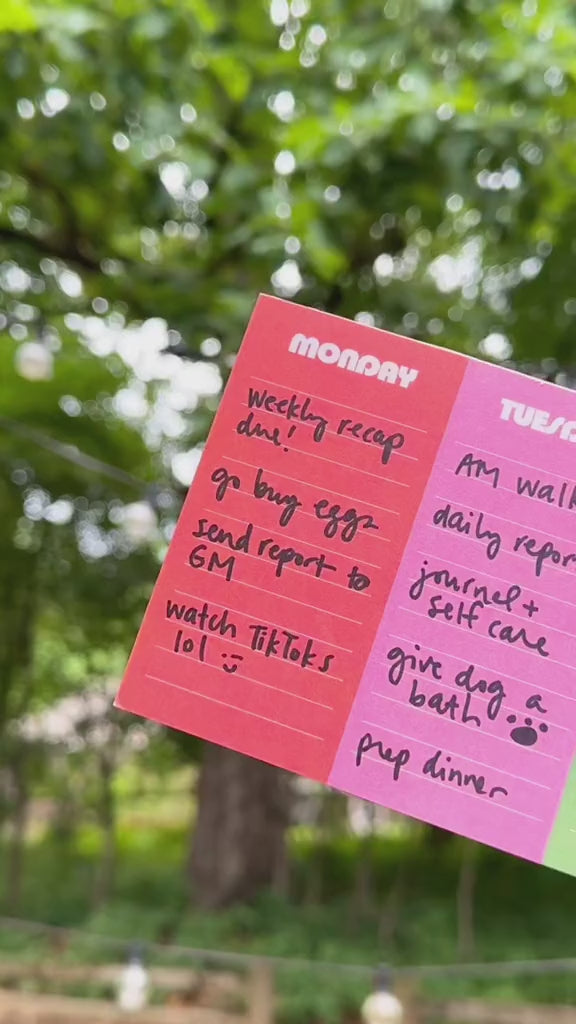 MONDAY
weekly recap
due!
go buy eggs
send report to
GM
watch TikToks
lol
AM walk
daily repor
journal +
self care
give dog a
bath
prep dinner